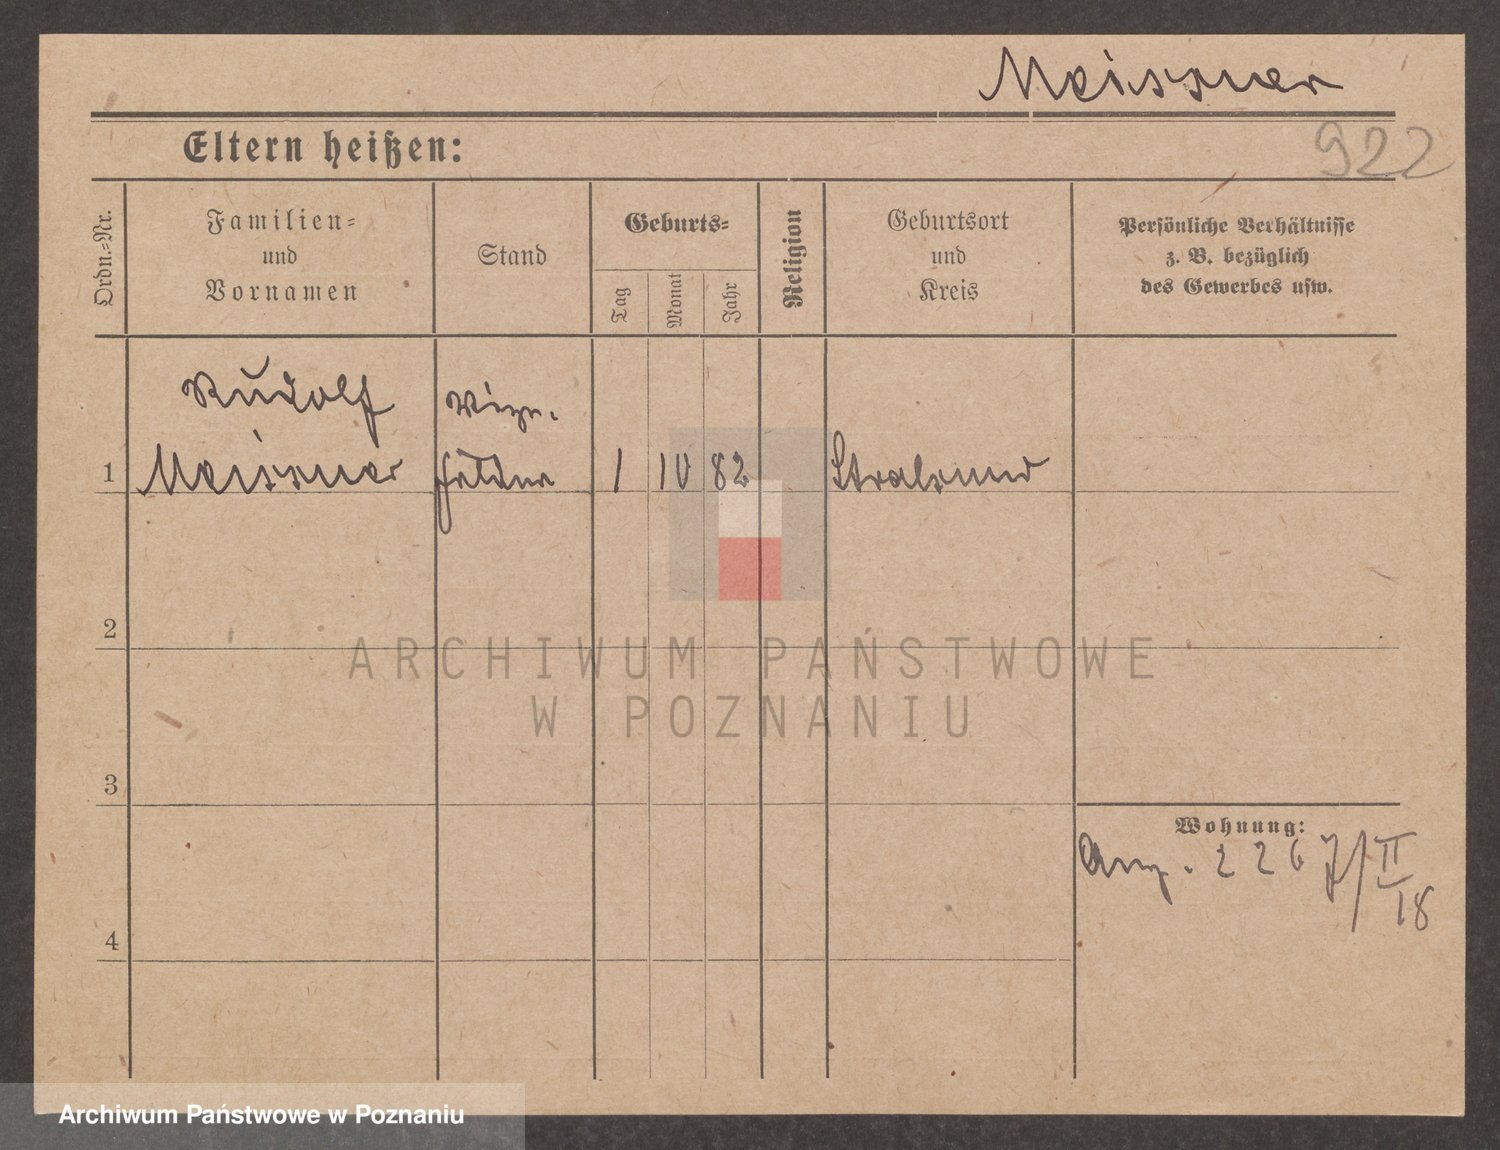 Meissner
922
Eltern heißen:
Ordn.-Nr.
Familien-
und
Vornamen
Stand
Geburts-
Tag
Monat
Jahr
Religion
Geburtsort
und
Kreis
Persönliche Verhältnisse
z. B. bezüglich
des Gewerbes usw.
Rudolf
Meissner
Vize-
1
1 10 82
Stralsund
2
3
4
Wohnung:
226 7/II
18
ARCHIWUM PAŃSTWOWE
W POZNANIU
Archiwum Państwowe w Poznaniu